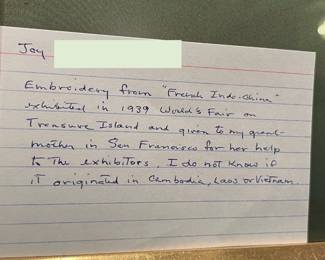 Joy
Embroidery from "French Indo-China"
exhibited in 1939 World's Fair on
Treasure Island and given to my grand-
mother in San Francisco for her help
to the exhibitors. I do not know if
it originated in Cambodia, Laos or Vietnam.